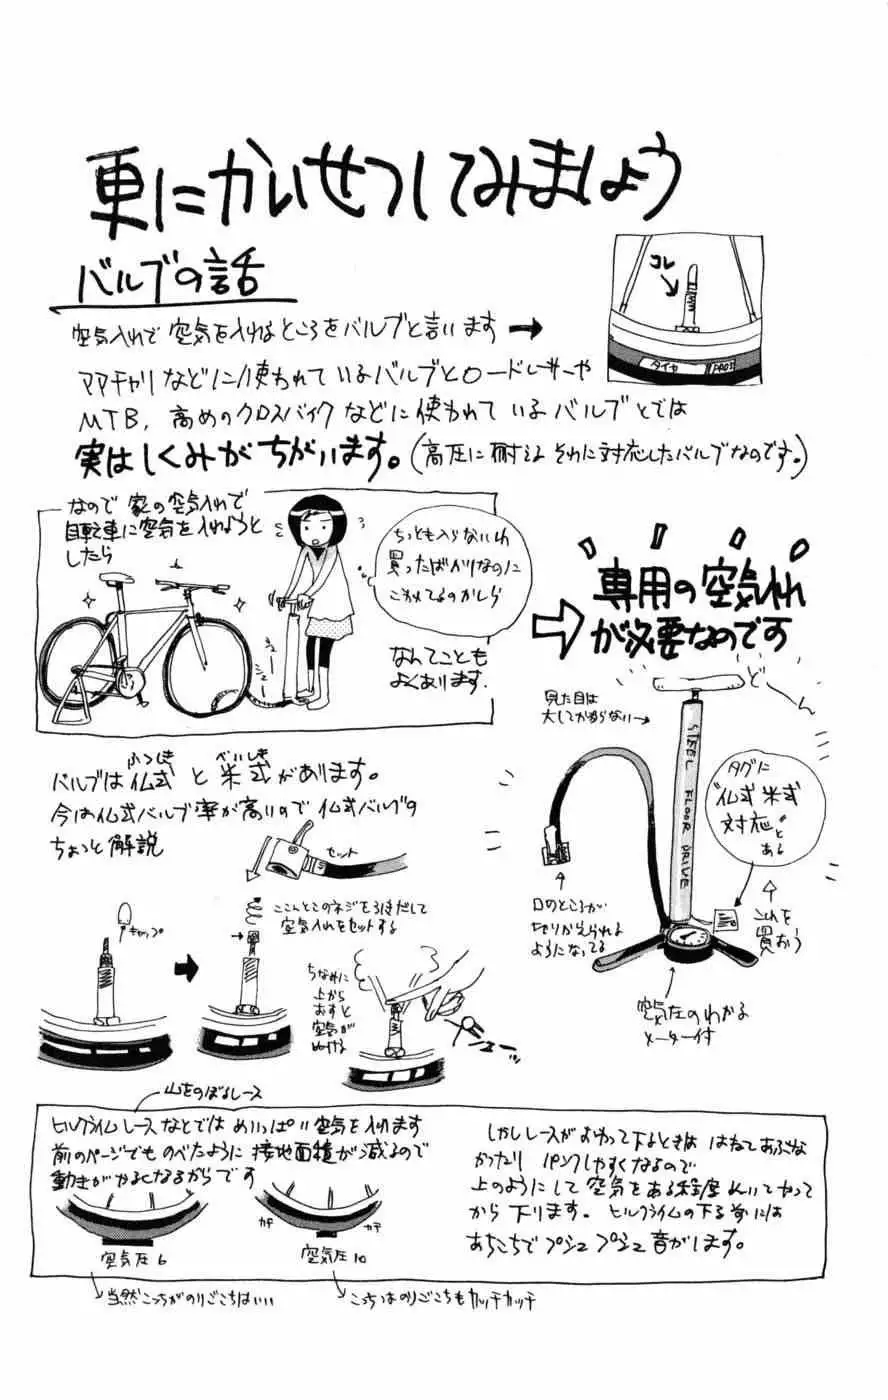 更にかいせつしてみましょう
バルブの話
コレ
タイヤ
空気入れで空気を入れるところをバルブと言います
ママチャリなどに使われているバルブとロードレーサーや
MTB, 高めのクロスバイクなどに使われているバルブとでは
実はしくみがちがいます。(高圧に耐えるそれに対応したバルブなのです。)
なので 家の空気入れで
自転車に空気を入れようと
したら
ちっとも入らないわ
買ったばかりなのに
こわれてるのかしら
シュー
シュー
なんてことも
よくあります.
専用の空気入れ
が必要なのです
どーん
見た目は
大してかわらない
STEEL FLOOR DRIVE
タグに
"仏式 米式
対応"と
ある
これを
買おう
口のところが
切りかえられる
ようになってる
空気圧のわかる
メーター付
ふつしき
べいしき
バルブは仏式と米式があります。
今は仏式バルブ率が高いので仏式バルブの
ちょっと解説
セット
キャップ
ここんとこのネジをうきだして
空気入れをセットする
ちなみに
上から
おすと
空気が
ぬける
山をのぼるレース
ヒルクライムレースなどでは めいっぱい空気を入れます
前のページでものべたように 接地面積が減るので
動きがかるくなるからです
空気圧6
カチ
カチ
空気圧10
当然こっちがのりごこちはいい
こっちはのりごこちもカッチカッチ
しかしレースがおわって下るときは はねてあぶな
かったり パンクしやすくなるので
上のようにして空気をある程度ぬいてやって
から下ります。ヒルクライムの下る前には
あちこちでプシュプシュ音がします。